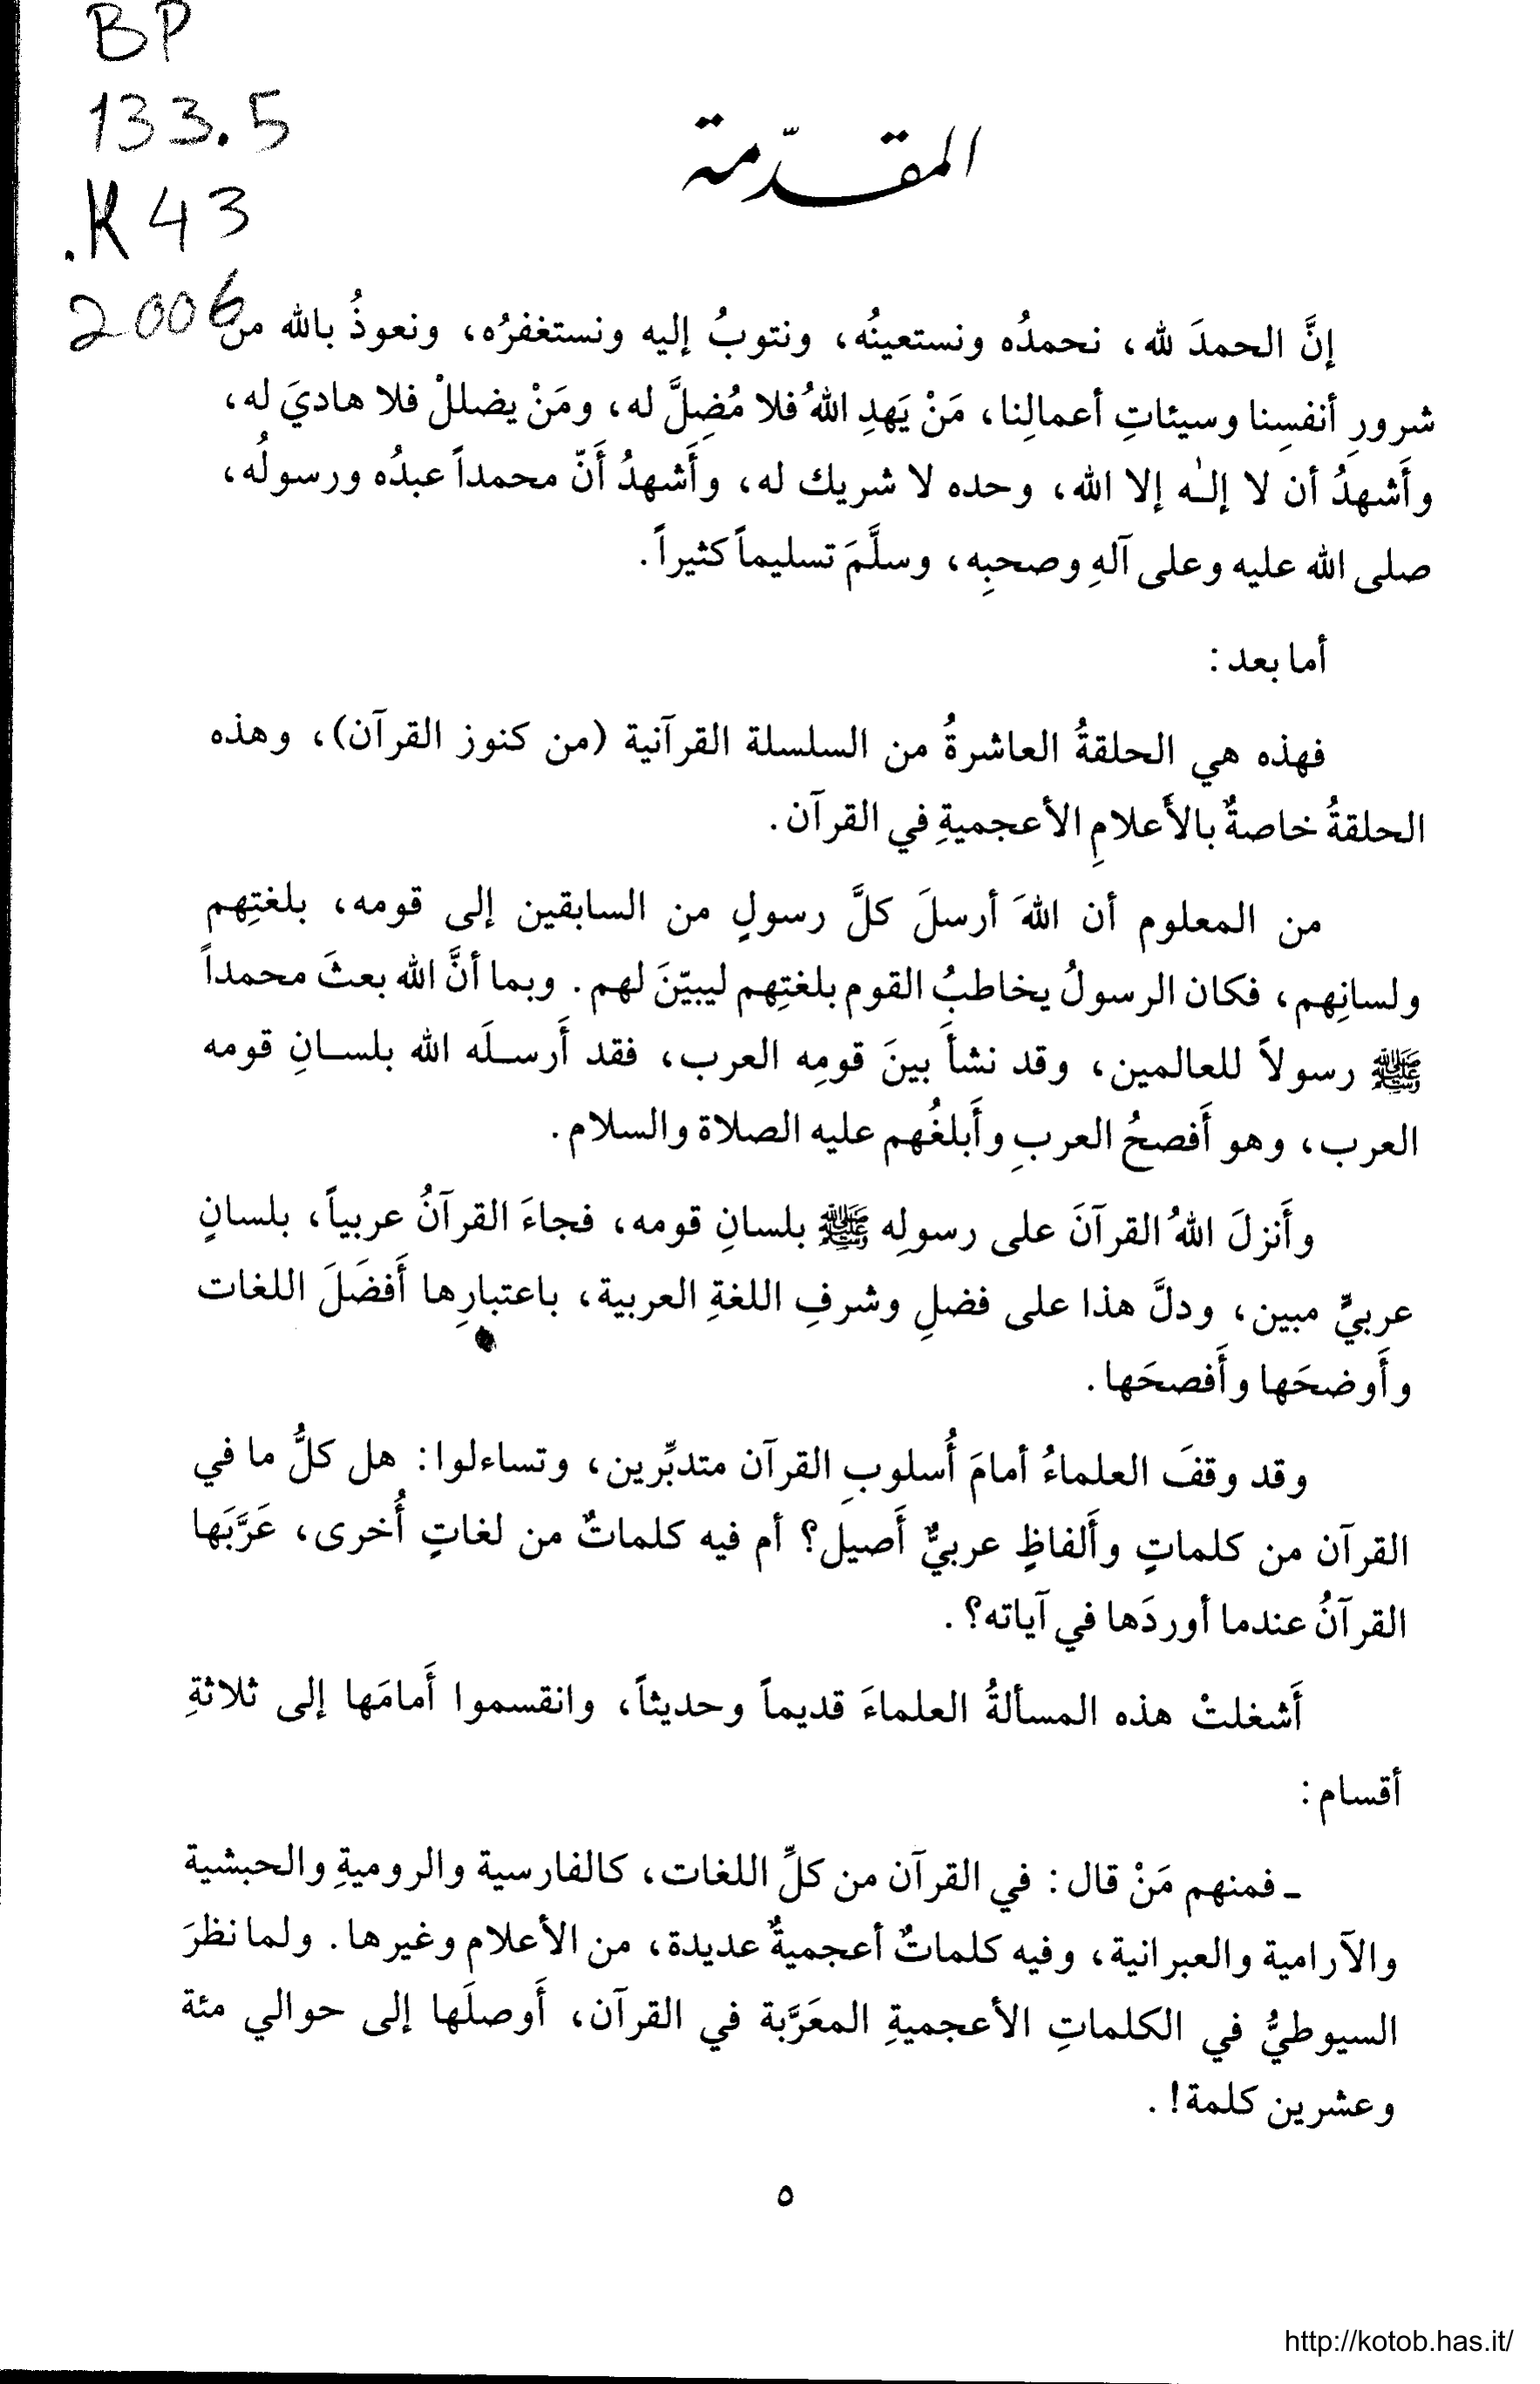 BP
133.5
.K43
2006
المقدّمة
إنَّ الحمدَ لله، نحمدُه ونستعينُه، ونتوبُ إليه ونستغفرُه، ونعوذُ بالله من
شرورِ أنفسِنا وسيئاتِ أعمالِنا، مَنْ يَهدِ اللهُ فلا مُضِلَّ له، ومَنْ يضللْ فلا هاديَ له،
وأَشهدُ أن لا إلـٰه إلا الله، وحده لا شريك له، وأَشهدُ أَنّ محمداً عبدُه ورسولُه،
صلى الله عليه وعلى آلهِ وصحبِه، وسلَّمَ تسليماً كثيراً.
أما بعد:
فهذه هي الحلقةُ العاشرةُ من السلسلة القرآنية (من كنوز القرآن)، وهذه
الحلقةُ خاصةٌ بالأَعلامِ الأعجميةِ في القرآن.
من المعلوم أن اللهَ أرسلَ كلَّ رسولٍ من السابقين إلى قومه، بلغتِهم
ولسانِهم، فكان الرسولُ يخاطبُ القوم بلغتِهم ليبيّنَ لهم. وبما أنَّ الله بعثَ محمداً
ﷺ رسولاً للعالمين، وقد نشأَ بينَ قومِه العرب، فقد أَرسـلَه الله بلسـانِ قومه
العرب، وهو أَفصحُ العربِ وأَبلغُهم عليه الصلاة والسلام.
وأَنزلَ اللهُ القرآنَ على رسولِه ﷺ بلسانِ قومه، فجاءَ القرآنُ عربياً، بلسانٍ
عربيٍّ مبين، ودلَّ هذا على فضلِ وشرفِ اللغةِ العربية، باعتبارِها أَفضَلَ اللغات
وأَوضحَها وأَفصحَها.
وقد وقفَ العلماءُ أمامَ أُسلوبِ القرآن متدبِّرين، وتساءلوا: هل كلُّ ما في
القرآن من كلماتٍ وأَلفاظٍ عربيٌّ أَصيل؟ أم فيه كلماتٌ من لغاتٍ أُخرى، عَرَّبَها
القرآنُ عندما أوردَها في آياته؟.
أَشغلتْ هذه المسألةُ العلماءَ قديماً وحديثاً، وانقسموا أَمامَها إلى ثلاثةِ
أقسام:
ـ فمنهم مَنْ قال: في القرآن من كلِّ اللغات، كالفارسية والروميةِ والحبشية
والآرامية والعبرانية، وفيه كلماتٌ أعجميةٌ عديدة، من الأعلام وغيرها. ولما نظرَ
السيوطيُّ في الكلماتِ الأعجميةِ المعَرَّبة في القرآن، أَوصلَها إلى حوالي مئة
وعشرين كلمة!.
٥
http://kotob.has.it/